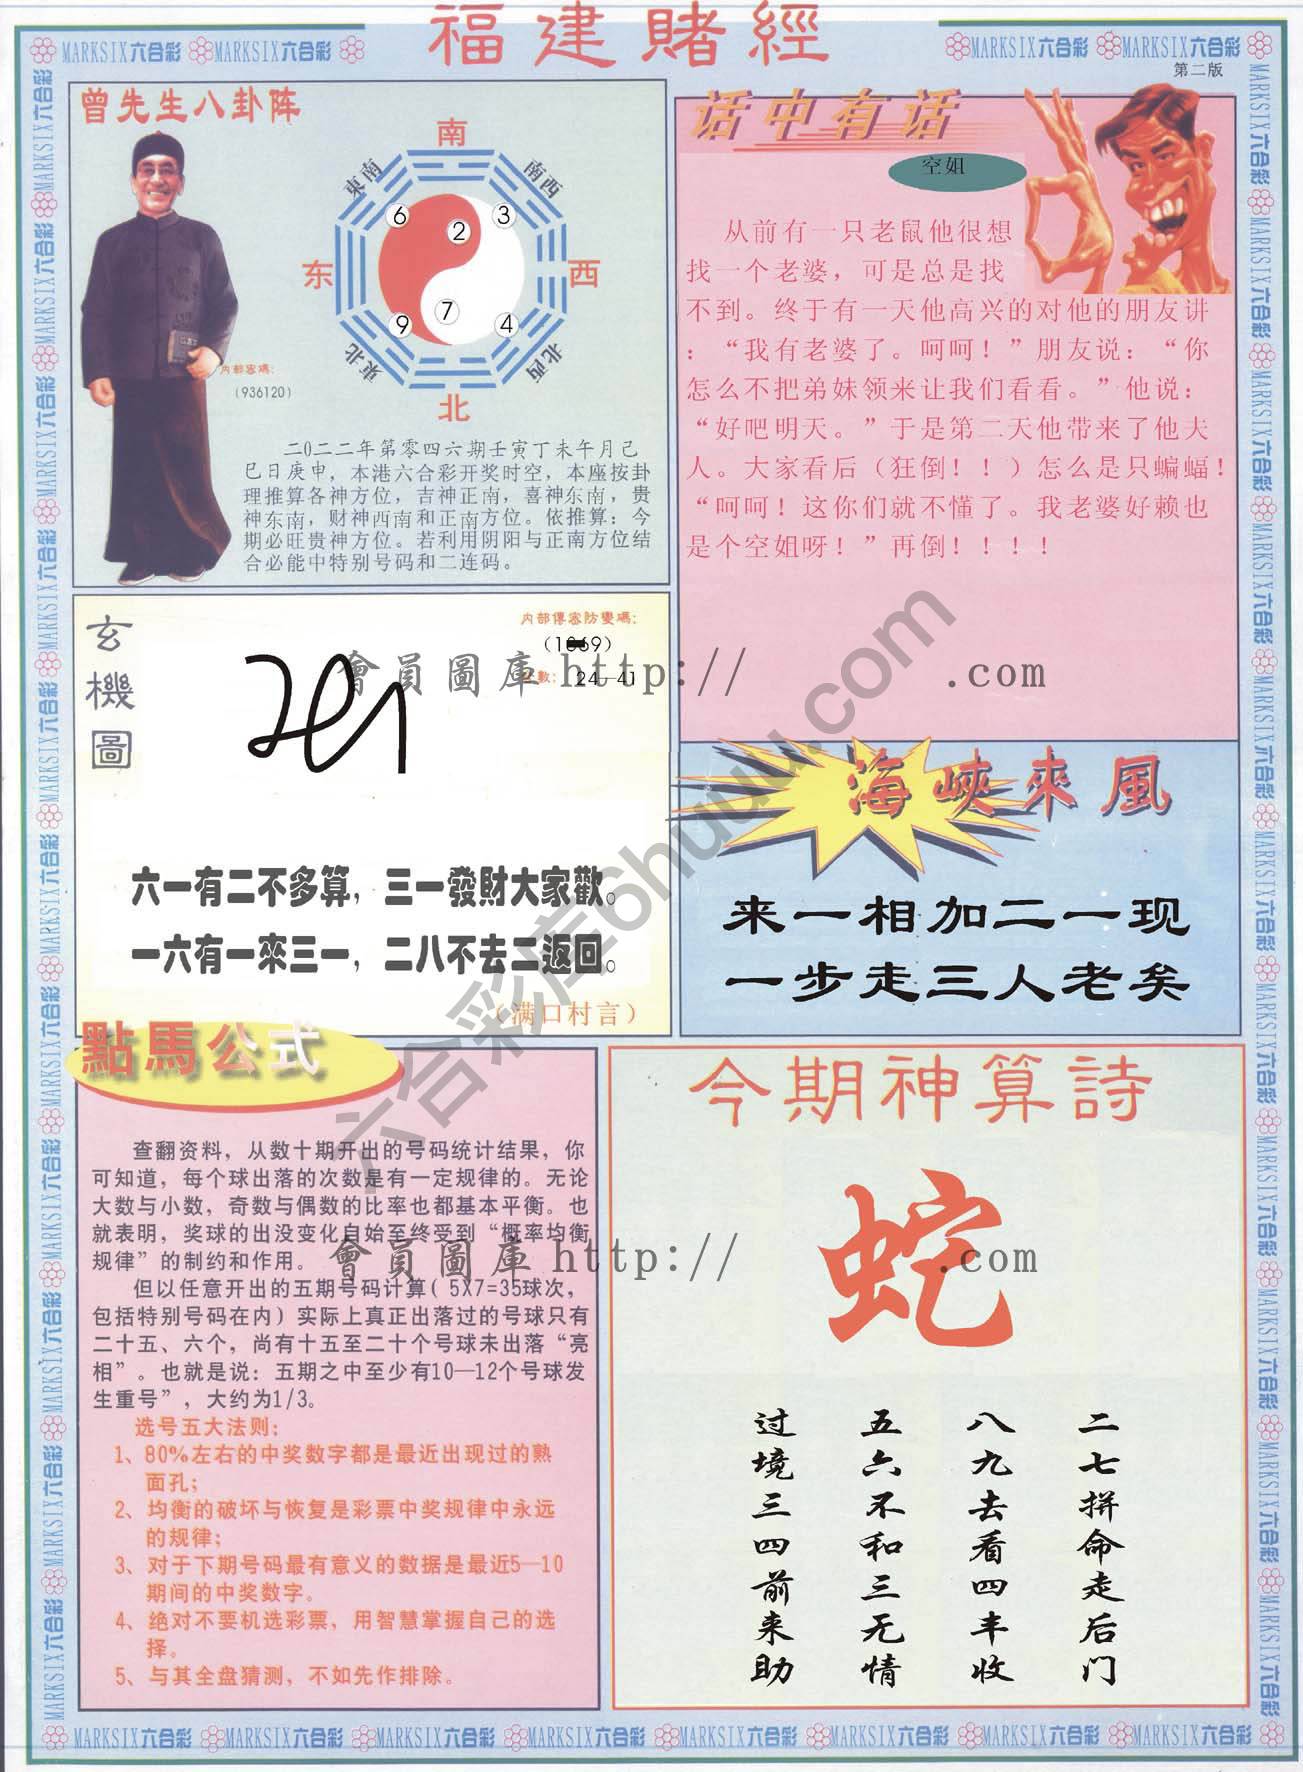 福建賭經
MARKSIX六合彩 MARKSIX六合彩
MARKSIX六合彩 MARKSIX六合彩
第二版
曾先生八卦阵
南
東南
南西
6
2
3
东
西
7
9
4
東北
北西
北
内部密碼:
(936120)
二0二二年第零四六期壬寅丁未午月己
巳日庚申，本港六合彩开奖时空，本座按卦
理推算各神方位，吉神正南，喜神东南，贵
神东南，财神西南和正南方位。依推算：今
期必旺贵神方位。若利用阴阳与正南方位结
合必能中特别号码和二连码。
话中有话
空姐
从前有一只老鼠他很想
找一个老婆，可是总是找
不到。终于有一天他高兴的对他的朋友讲
：“我有老婆了。呵呵！”朋友说：“你
怎么不把弟妹领来让我们看看。”他说：
“好吧明天。”于是第二天他带来了他夫
人。大家看后（狂倒！！）怎么是只蝙蝠！
“呵呵！这你们就不懂了。我老婆好赖也
是个空姐呀！”再倒！！！！
玄機圖
内部傳密防變碼:
數: 24—41
會員圖庫 http:// .com
六一有二不多算，三一發財大家歡。
一六有一來三一，二八不去二返回。
（满口村言）
海峽來風
来一相加二一现
一步走三人老矣
六合彩库6huuu.com
點馬公式
查翻资料，从数十期开出的号码统计结果，你
可知道，每个球出落的次数是有一定规律的。无论
大数与小数，奇数与偶数的比率也都基本平衡。也
就表明，奖球的出没变化自始至终受到“概率均衡
规律”的制约和作用。
但以任意开出的五期号码计算( 5X7=35球次，
包括特别号码在内）实际上真正出落过的号球只有
二十五、六个，尚有十五至二十个号球未出落“亮
相”。也就是说：五期之中至少有10—12个号球发
生重号”，大约为1/3。
选号五大法则：
1、80%左右的中奖数字都是最近出现过的熟
面孔；
2、均衡的破坏与恢复是彩票中奖规律中永远
的规律；
3、对于下期号码最有意义的数据是最近5—10
期间的中奖数字。
4、绝对不要机选彩票，用智慧掌握自己的选
择。
5、与其全盘猜测，不如先作排除。
會員圖庫 http:// .com
今期神算詩
蛇
二七拼命走后门
八九去看四丰收
五六不和三无情
过境三四前来助
MARKSIX六合彩 MARKSIX六合彩 MARKSIX六合彩 MARKSIX六合彩 MARKSIX六合彩 MARKSIX六合彩 MARKSIX六合彩 MARKSIX六合彩